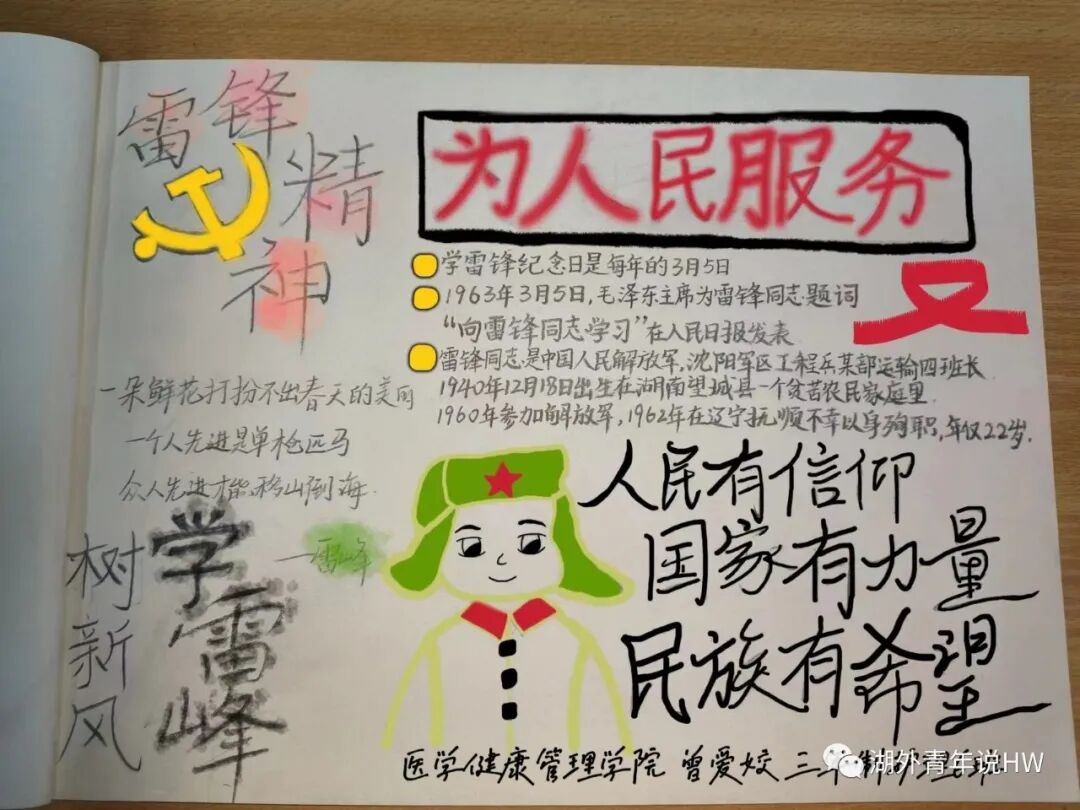 雷锋精神
为人民服务
学雷锋纪念日是每年的3月5日
1963年3月5日，毛泽东主席为雷锋同志题词
“向雷锋同志学习”在人民日报发表
雷锋同志是中国人民解放军，沈阳军区工程兵某部运输四班长
1940年12月18日出生在湖南望城县一个贫苦农民家庭里
1960年参加解放军，1962年在辽宁抚顺不幸以身殉职，年仅22岁.
一朵鲜花打扮不出春天的美丽
一个人先进是单枪匹马
众人先进才能移山倒海.
—雷峰
学雷峰
树新风
人民有信仰
国家有力量
民族有希望
医学健康管理学院 曾爱姣 三年制
湖外青年说HW